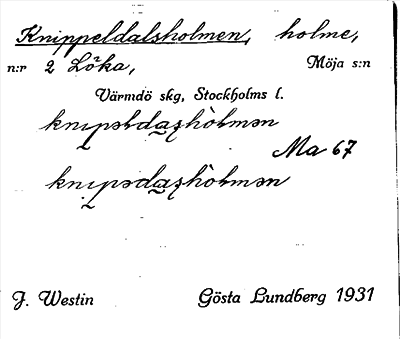 Knippeldalsholmen, holme,
n:r 2 Löka, Möja s:n
Värmdö skg, Stockholms l.
Ma 67
J. Westin Gösta Lundberg 1931